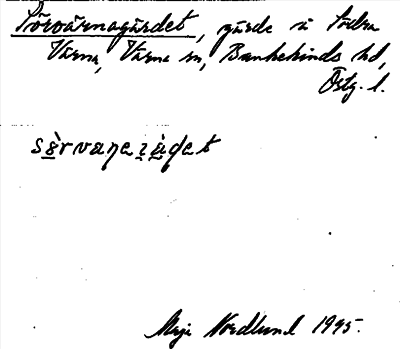 Sörvärnagärdet, gärde i Södra
Värna, Värna sn, Bankekinds hd,
Östg. l.
sörvanejädet
Maja Nordlund 1945.